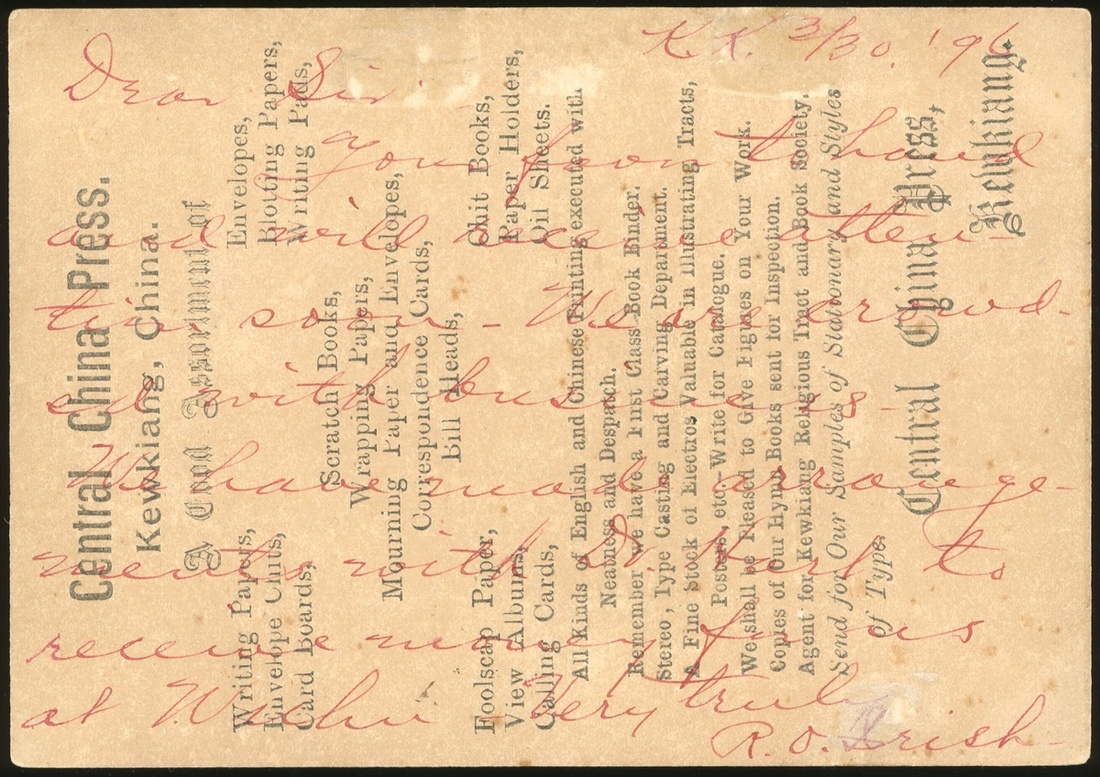 K.K. 3/30. '96
Dear Sir
Your favor to hand
and will receive atten-
tion soon - We are crowd-
ed with business -
We have made arrange-
ments with Dr. Hart to
receive money for us
at Wuhu Very truly
R. O. Irish -
Central China Press.
Kewkiang, China.
A Good Assortment of
Writing Papers, Envelopes,
Envelope Chits, Blotting Papers,
Card Boards, Writing Pads,
Scratch Books,
Wrapping Papers,
Mourning Paper and Envelopes,
Correspondence Cards,
Bill Heads,
Foolscap Paper, Chit Books,
View Albums, Paper Holders,
Calling Cards, Oil Sheets.
All Kinds of English and Chinese Printing executed with
Neatness and Despatch.
Remember we have a First Class Book Binder.
Stereo, Type Casting and Carving Department.
A Fine Stock of Electros Valuable in Illustrating Tracts,
Posters, etc.-Write for Catalogue.
We shall be Pleased to Give Figures on Your Work.
Copies of Our Hymn Books sent for Inspection.
Agent for Kewkiang Religious Tract and Book Society.
Send for Our Samples of Stationary and Styles
of Type.
Central China Press,
Kewkiang.